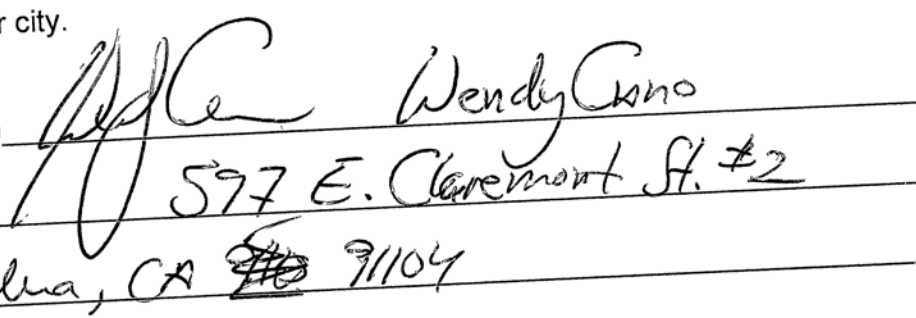 r city.
Wendy Cano
597 E. Claremont St. #2
, CA 91104